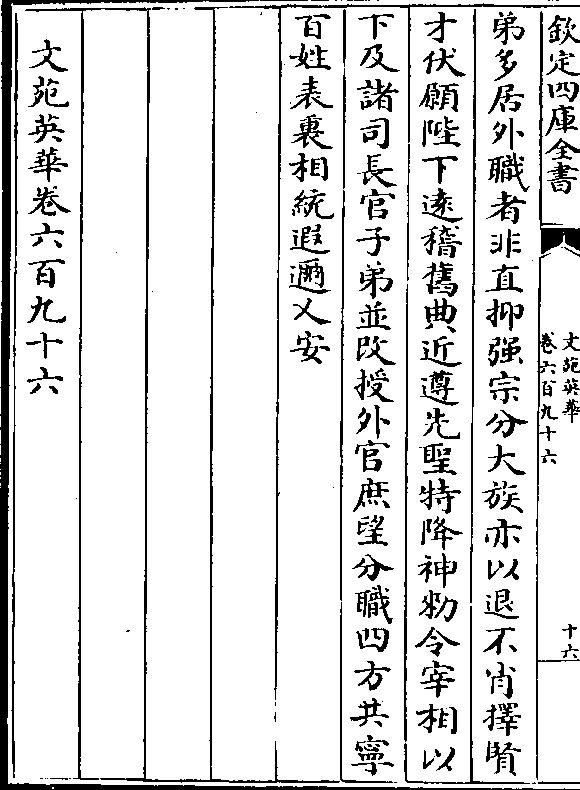 欽定四庫全書
文苑英華
卷六百九十六
十六
弟多居外職者非直抑强宗分大族亦以退不肖擇賢
才伏願陛下遠稽舊典近遵先聖特降神勑令宰相以
下及諸司長官子弟並改授外官庶望分職四方共寧
百姓表裏相統遐邇乂安
文苑英華卷六百九十六